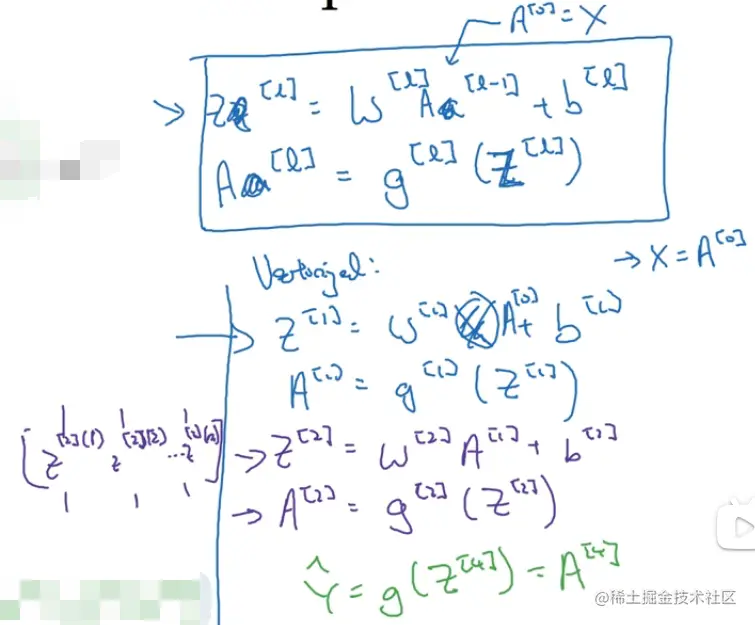 A^[0] = X
→ Z^[l] = W^[l] A^[l-1] + b^[l]
A^[l] = g^[l] (Z^[l])
→ X = A^[0]
Vectorized:
→ Z^[1] = W^[1] A^[0] + b^[1]
A^[1] = g^[1] (Z^[1])
[z^[2](1) z^[2](2) ... z^[2](m)]
→ Z^[2] = W^[2] A^[1] + b^[2]
→ A^[2] = g^[2] (Z^[2])
Ŷ = g(Z^[4]) = A^[4]
@稀土掘金技术社区